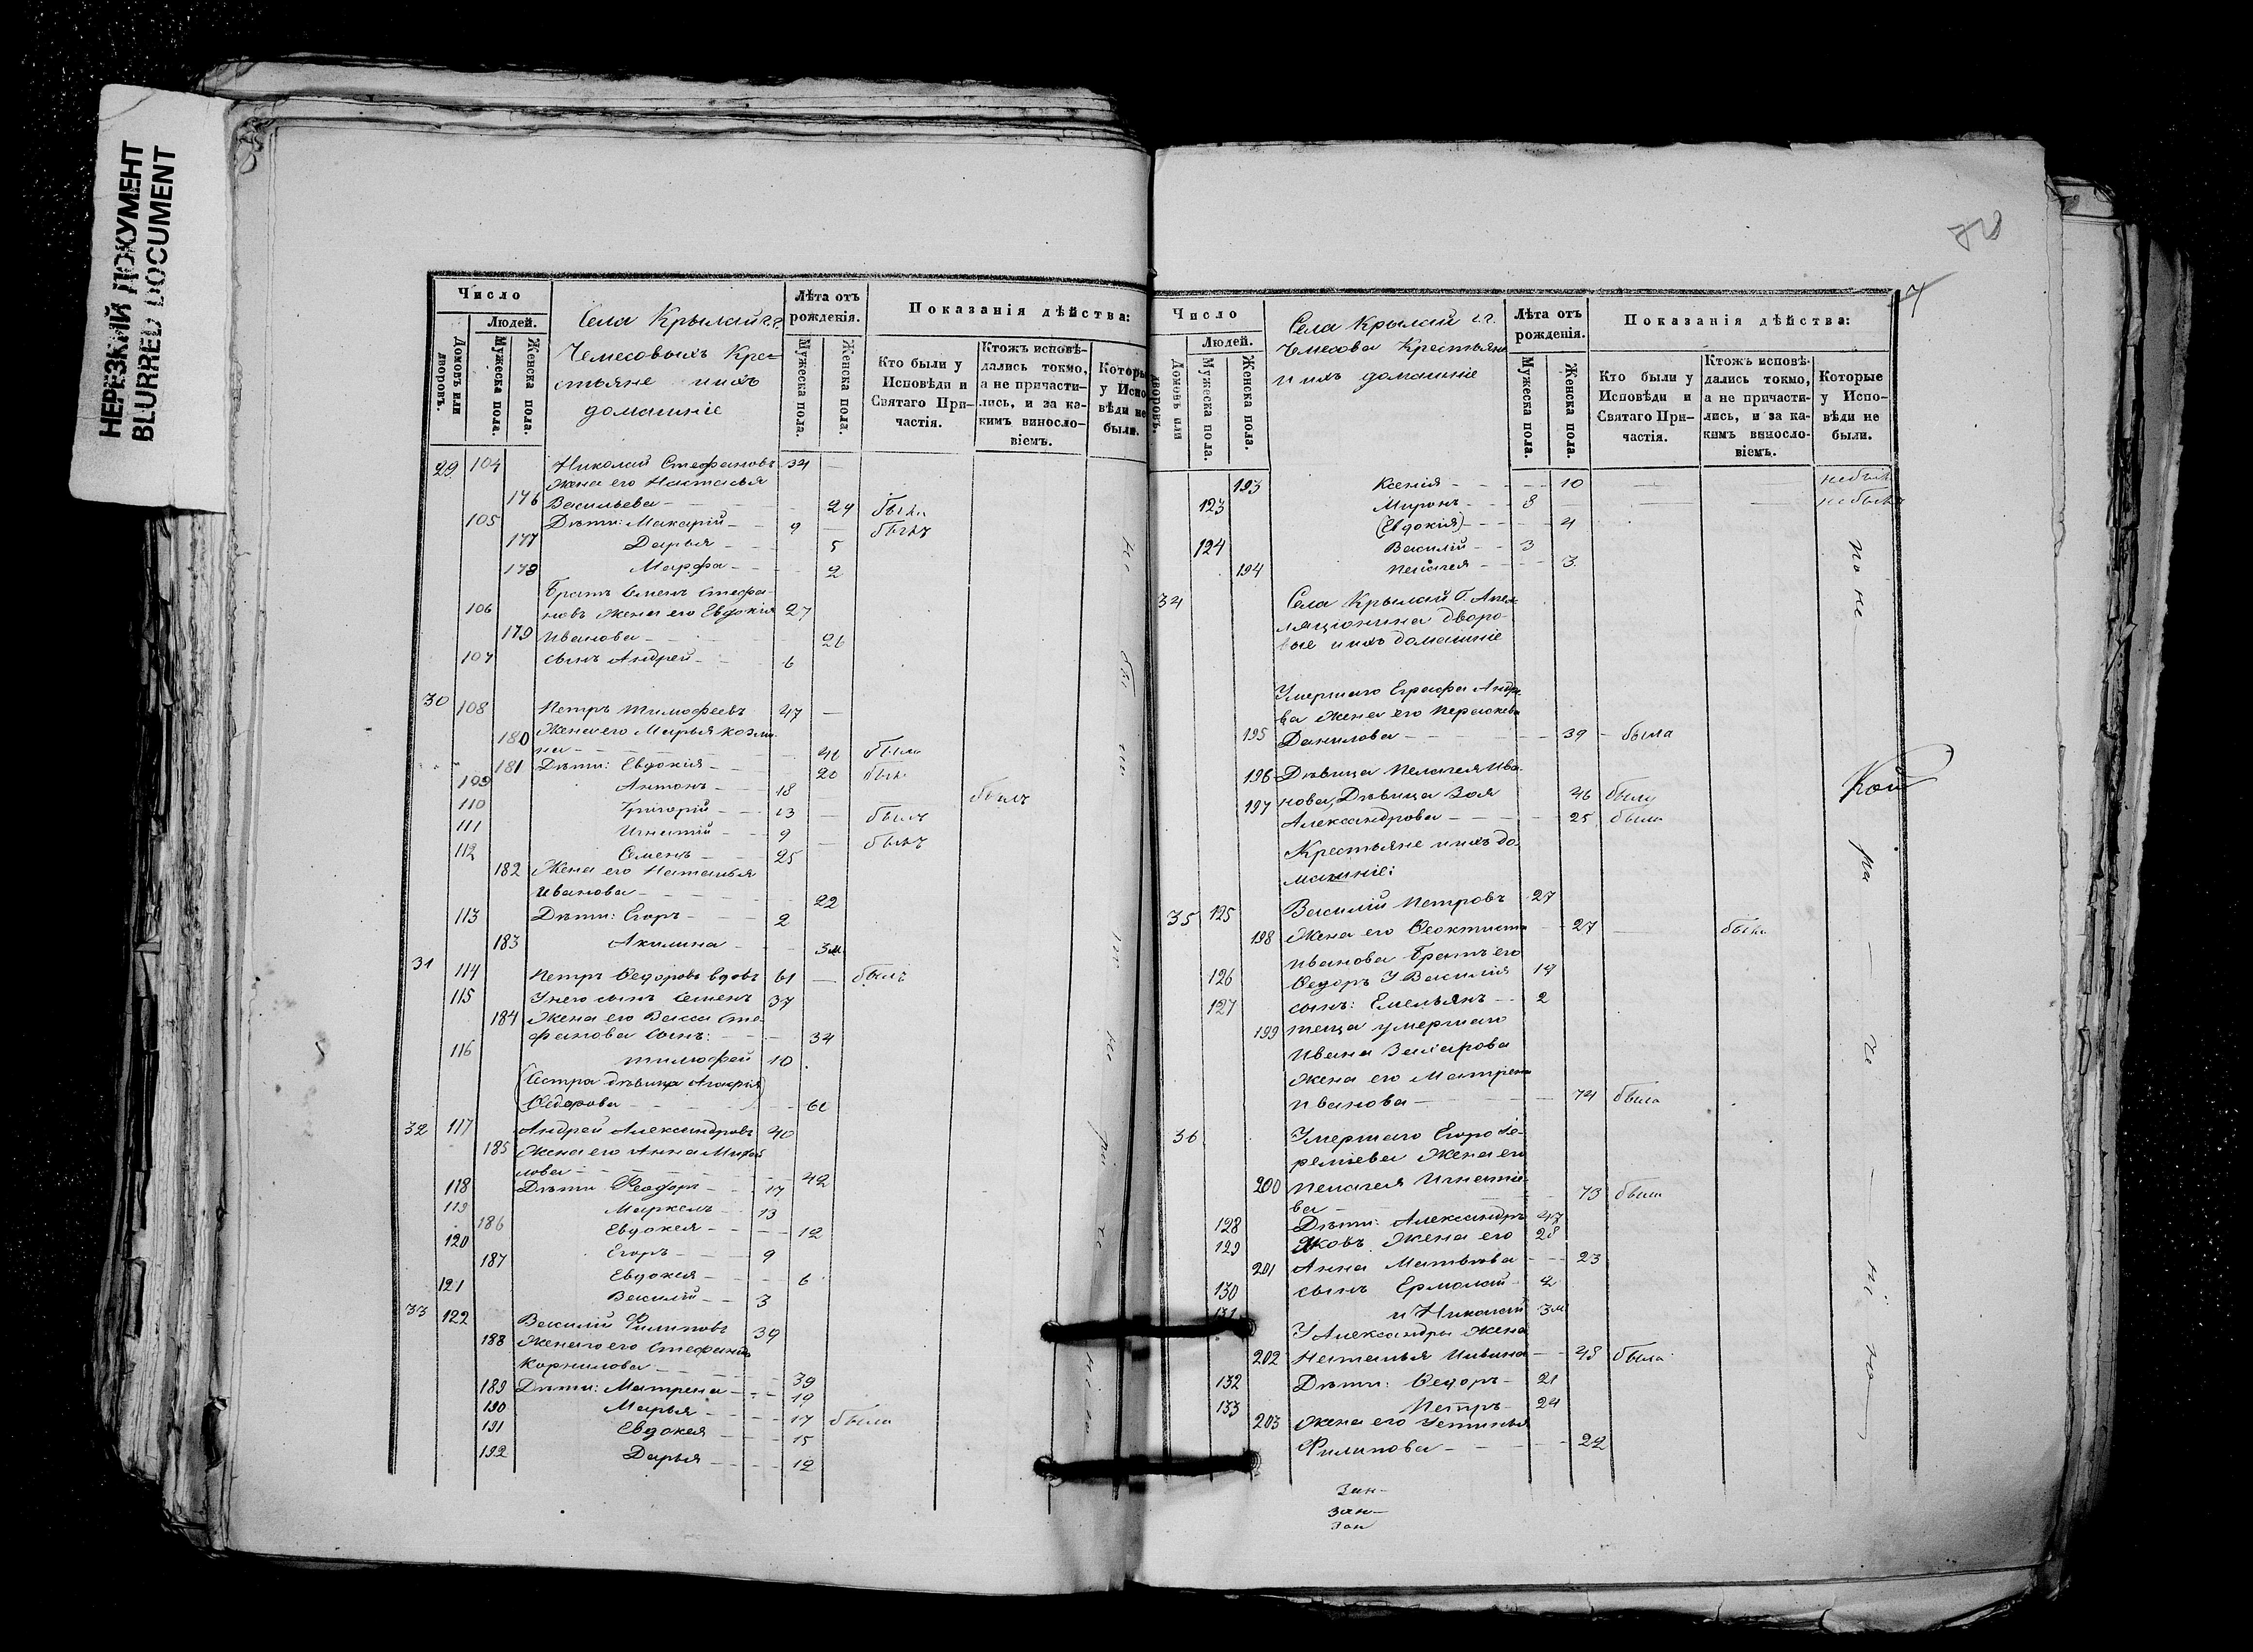 НЕРЕЗКИЙ ДОКУМЕНТ
BLURRED DOCUMENT
Число
Людей.
Домовъ или дворовъ.
Мужеска пола.
Женска пола.
Села Крылай г.г.
Чемесовыхъ Кре-
стьяне и ихъ
домашніе
Лѣта отъ рожденія.
Мужеска пола.
Женска пола.
Показанія дѣйства:
Кто были у Исповѣди и Святаго При-частія.
Ктожъ исповѣ-дались токмо, а не причасти-лись, и за ка-кимъ винословіемъ.
Которые у Испо-вѣди не были.
29 104 Николай Стефановъ 34
Жена его Настасья
176 Васильева 29 была
105 Дѣти: Макарій 9 былъ
177 Дарья 5
178 Марфа 2
Братъ Семенъ Стефа-
106 новъ Жена его Евдокія 27
179 Иванова 26
107 сынъ Андрей 6
30 108 Петръ Тимофеевъ 47
180 Жена его Марья Козми-
на 46 была
181 Дѣти: Евдокія 20 была
109 Антонъ 18 былъ
110 Григорій 13 былъ
111 Игнатій 9 былъ
112 Семенъ 25
182 Жена его Наталья
Иванова 22
113 Дѣти: Егоръ 2
183 Акилина 3м
31 114 Петръ Ѳедоровъ вдовъ 61 былъ
115 У него сынъ Семенъ 37
184 Жена его Васса Сте-
фанова Сынъ: 34
116 Тимофей 10
(Сестра дѣвица Агафія
Ѳедорова) 61
32 117 Андрей Александровъ 40
185 Жена его Анна Михай
лова 42
118 Дѣти Ѳеодоръ 17
119 Маркелъ 13
186 Евдокея 12
120 Егоръ 9
187 Евдокея 6
121 Василій 3
33 122 Василій Филиповъ 39
188 Жена его Стефанида
Корнилова 39
189 Дѣти: Матрена 19
190 Марья 17 была
191 Евдокея 15
192 Дарья 12
7
Число
Людей.
Домовъ или дворовъ.
Мужеска пола.
Женска пола.
Села Крылай г.г.
Чемесова Крестьяне
и ихъ домашніе
Лѣта отъ рожденія.
Мужеска пола.
Женска пола.
Показанія дѣйства:
Кто были у Исповѣди и Святаго При-частія.
Ктожъ исповѣ-дались токмо, а не причасти-лись, и за ка-кимъ винословіемъ.
Которые у Испо-вѣди не были.
193 Ксенія 10 не была
123 Миронъ 8 не былъ
(Евдокія) 4
124 Василій 3
194 Пелагея 3
34 Села Крылай Г. Апел-
ляціонина дворо-
вые и ихъ домашніе
Умершаго Еграфа Андре-
ва Жена его Пераскева
195 Данилова 39 была
196 Дѣвица Пелагея Ива-
197 нова, Дѣвица Зоя 46 была
Александрова 25 была
Крестьяне и ихъ до-
машніе:
35 125 Василій Петровъ 27
198 Жена его Ѳеоктиста 27 была
Иванова Братъ его
126 Ѳедоръ У Василія 19
127 сынъ: Емельянъ 2
199 теща умершаго
Ивана Захарова
Жена его Матрена
Иванова 74 была
36 Умершаго Егора Ге-
реміева Жена его
200 Пелагея Игнатіе-
ва 73 была
128 Дѣти: Александръ 47
129 Яковъ Жена его 28
201 Анна Матвѣева 23
130 сынъ Ермолай 2
131 и Николай 3м
У Александры Жена
202 Наталья 48 была
132 Дѣти: Ѳедоръ 21
133 Петръ 24
203 Жена его Устинья
Филипова 22
Зан-
Зан-
Зан